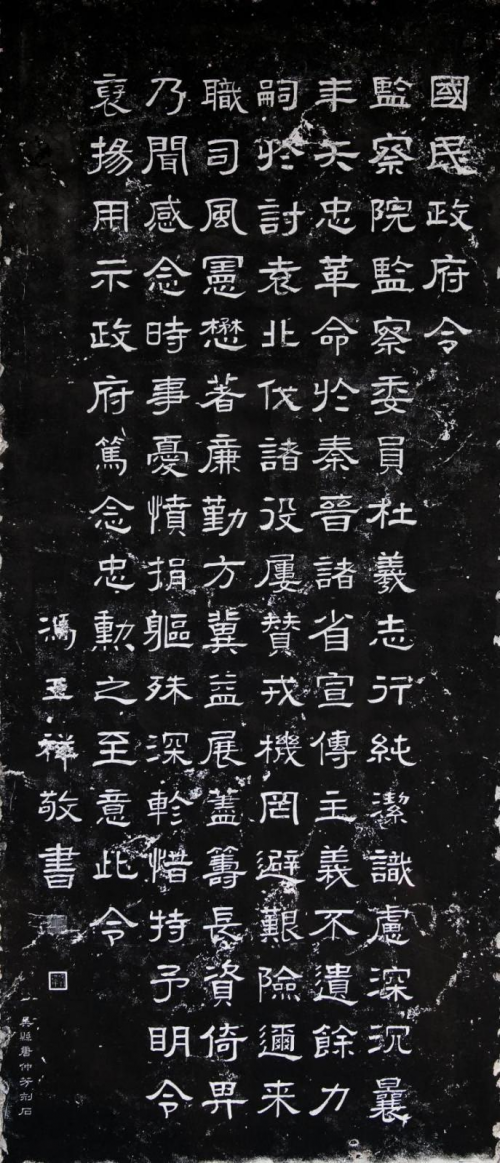 國民政府令
監察院監察委員杜羲志行純潔識慮深沉曩
年矢忠革命於秦晉諸省宣傳主義不遺餘力
嗣於討袁北伐諸役屢贊戎機罔避艱險邇来
職司風憲懋著廉勤方冀益展蓋籌長資倚畀
乃聞感念時事憂憤捐軀殊深軫惜特予明令
襃揚用示政府篤念忠勳之至意此令
馮玉祥敬書
吳縣唐仲芳刻石